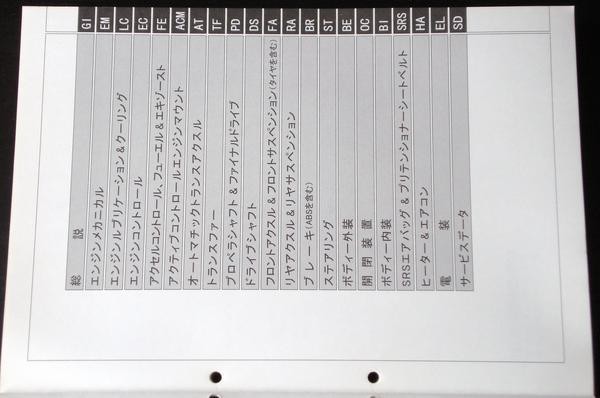 総 説 GI
エンジンメカニカル EM
エンジンルブリケーション & クーリング LC
エンジンコントロール EC
アクセルコントロール、フューエル & エキゾースト FE
アクティブコントロールエンジンマウント ACM
オートマチックトランスアクスル AT
トランスファー TF
プロペラシャフト & ファイナルドライブ PD
ドライブシャフト DS
フロントアクスル & フロントサスペンション(タイヤを含む) FA
リヤアクスル & リヤサスペンション RA
ブレーキ(ABSを含む) BR
ステアリング ST
ボディー外装 BE
開 閉 装 置 OC
ボディー内装 BI
SRSエアバッグ & プリテンショナーシートベルト SRS
ヒーター & エアコン HA
電 装 EL
サービスデータ SD